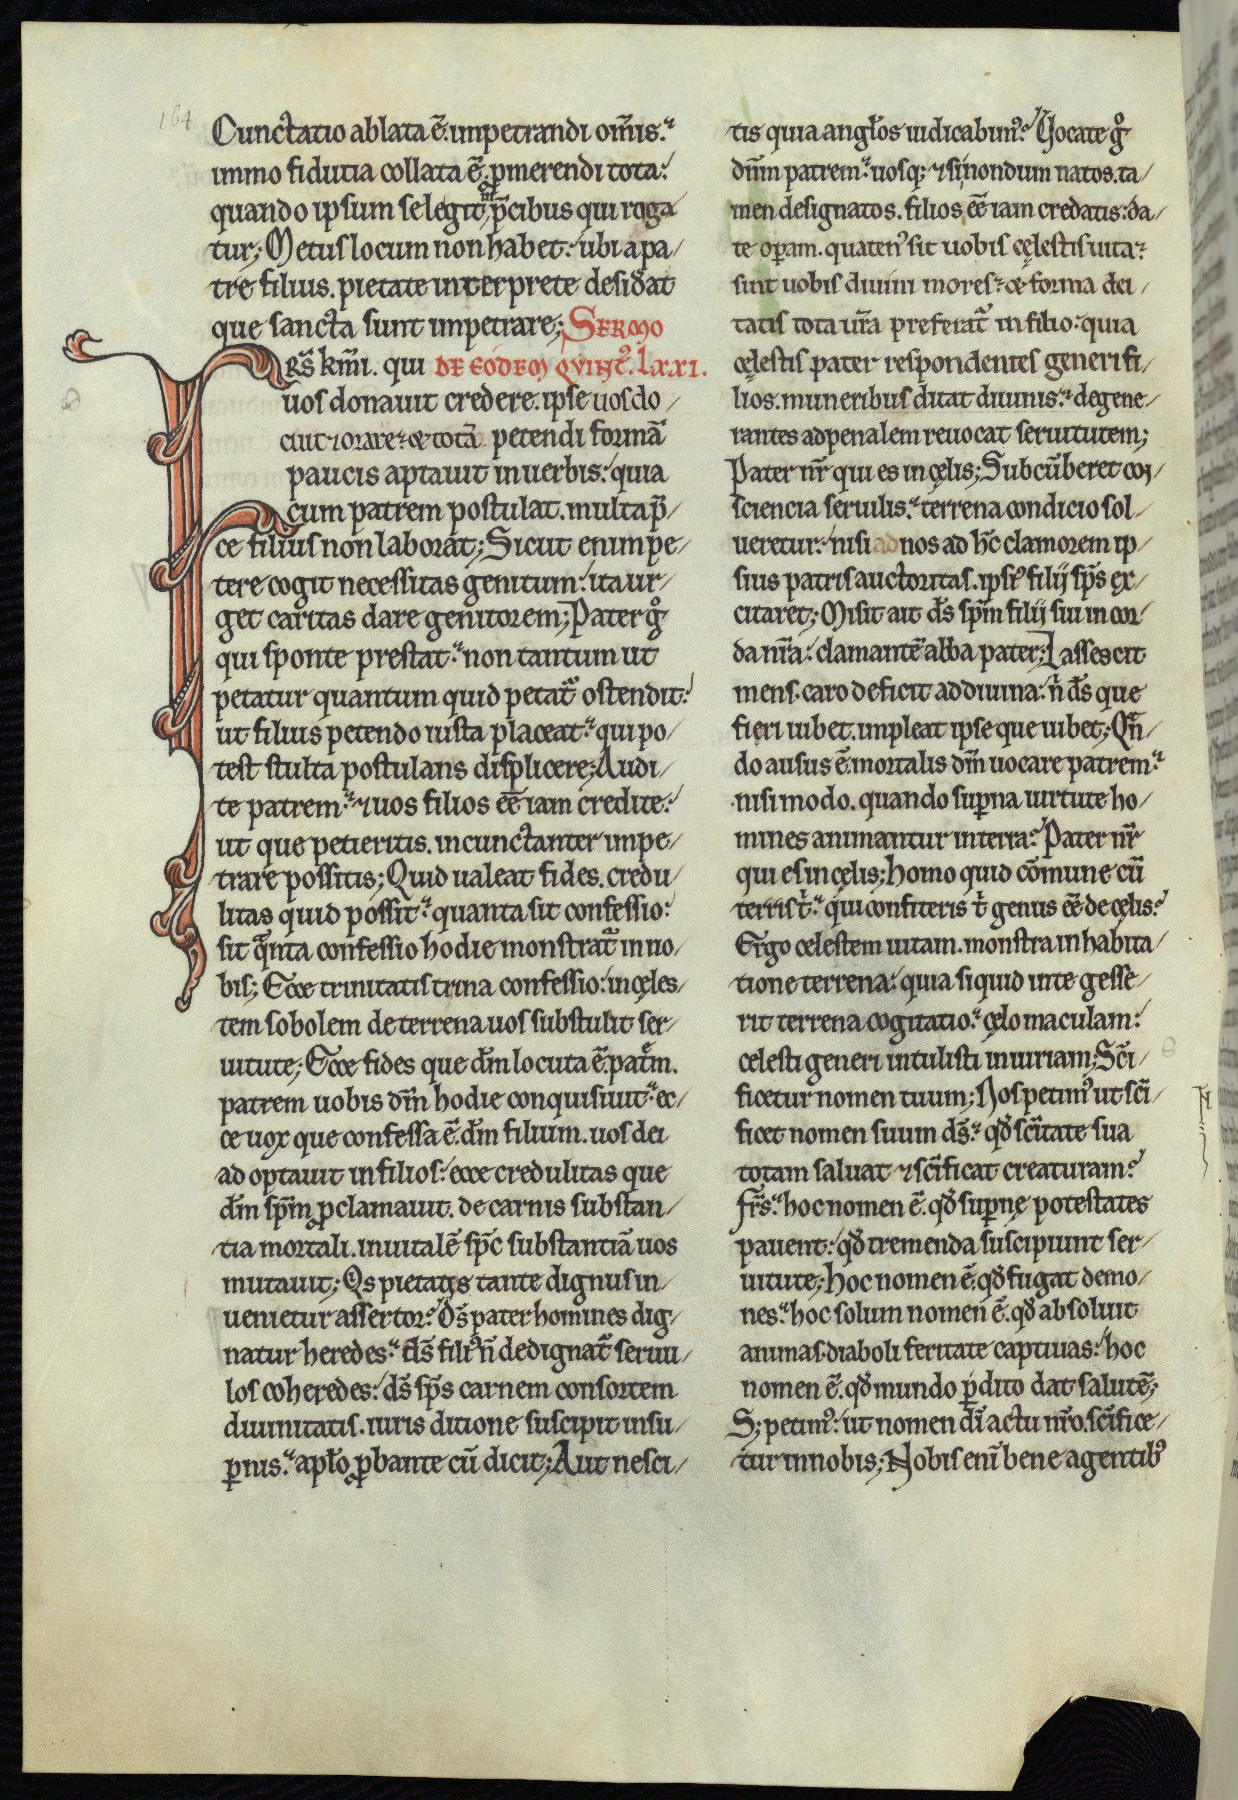 164
Cunctatio ablata ē. impetrandi om̄is:
immo fidutia collata ē. ꝓmerendi tota:
quando ipsum se legit p̄cibus qui roga
tur; Metus locum non habet: ubi a pa/
tre filius. pietate interprete desiđat
que sancta sunt impetrare; Sermo
FRS̄ km̄i. qui de eodem quinꝰ. lxxi.
uos donauit credere. ipse uos do/
cuit ⁊ orare: ⁊ totā petendi formā
paucis aptauit in uerbis: quia
cum patrem postulat. multa p̄/
ce filius non laborat; Sicut enim pe/
tere cogit necessitas genitum: ita ur/
get caritas dare genitorem; Pater gͦ
qui sponte prestat: non tantum ut
petatur quantum quid petat᷑ ostendit:
ut filius petendo iusta placeat: qui po/
test stulta postulans displicere; Audi/
te patrem: ⁊ uos filios eē iam credite:
ut que petieritis. incunctanter impe/
trare possitis; Quid ualeat fides. credu/
litas quid possit: quanta sit confessio:
sit qͣnta confessio hodie monstrat᷑ in no/
bis; Ecce trinitatis trina confessio: in cęles/
tem sobolem de terrena uos substulit ser/
uitute; Ecce fides que dm̄ locuta ē. patrē.
patrem uobis dm̄ hodie conquisiuit: ec/
ce uox que confessa ē. dm̄ filium. uos dei
adoptauit in filios: ecce credulitas que
dm̄ spm̄ ꝓclamauit. de carnis substan/
tia mortali. in uitalē spc̄ substantiā uos
mutauit; Qs pietatis tante dignus in/
uenietur assertor? Ds̄ pater homines dig/
natur heredes: ds̄ filiꝰ n̄ dedignat᷑ seruu/
los coheredes: ds̄ sps̄ carnem consortem
diuinitatis. iuris ditione suscipit in su/
ꝑnis: apł̄o ꝓbante cū dicit; Aut nesci/
tis quia angł̄os iudicabimꝰ? Uocate gͦ
dn̄m patrem: uosq; ⁊ si nondum natos. ta/
men designatos. filios eē iam credatis: da/
te oꝑam. quatenꝰ sit uobis cęlestis uita:
sint uobis diuini mores: ⁊ forma dei/
tatis tota ur̄a preferat᷑ in filio: quia
cęlestis pater respondentes generi fi/
lios. muneribus ditat diuinis: degene/
rantes ad penalem reuocat seruitutem;
Pater nr̄ qui es in cęlis; Subcūberet con/
sciencia seruilis: terrena condicio sol/
ueretur: nisi ad nos ad hc̄ clamorem ip/
sius patris auctoritas. ipsiꝰ filij sps̄ ex/
citaret; Misit ait ds̄ spm̄ filij sui in cor/
da nr̄a: clamantē abba pater; Lassescit
mens. caro deficit ad diuina: n̄ ds̄ que
fieri iubet. impleat ipse que iubet; Qn̄/
do ausus ē. mortalis dm̄ uocare patrem:
nisi modo. quando suꝑna uirtute ho/
mines animantur in terra? Pater nr̄
qui es in cęlis; homo quid cōmune cū
terris t̄: qui confiteris t̄ genus eē de cęlis?
Ergo celestem uitam. monstra in habita/
tione terrena: quia si quid in te gesse/
rit terrena cogitatio: cęlo maculam:
celesti generi intulisti iniuriam; Sc̄i/
ficetur nomen tuum; Nos petimꝰ ut sc̄i/
ficet nomen suum ds̄: qđ sc̄itate sua
totam saluat ⁊ sc̄ificat creaturam?
Frs̄: hoc nomen ē. qđ suꝑnę potestates
pauent: qđ tremenda suscipiunt ser/
uitute; hoc nomen ē. qđ fugat demo/
nes: hoc solum nomen ē. qđ absoluit
animas. diaboli feritate captiuas: hoc
nomen ē. qđ mundo ꝑdito dat salutē;
S; petimꝰ: ut nomen di̅ actu nr̄o. sc̄ifice/
tur in nobis; Nobis eni̅ bene agentibꝰ